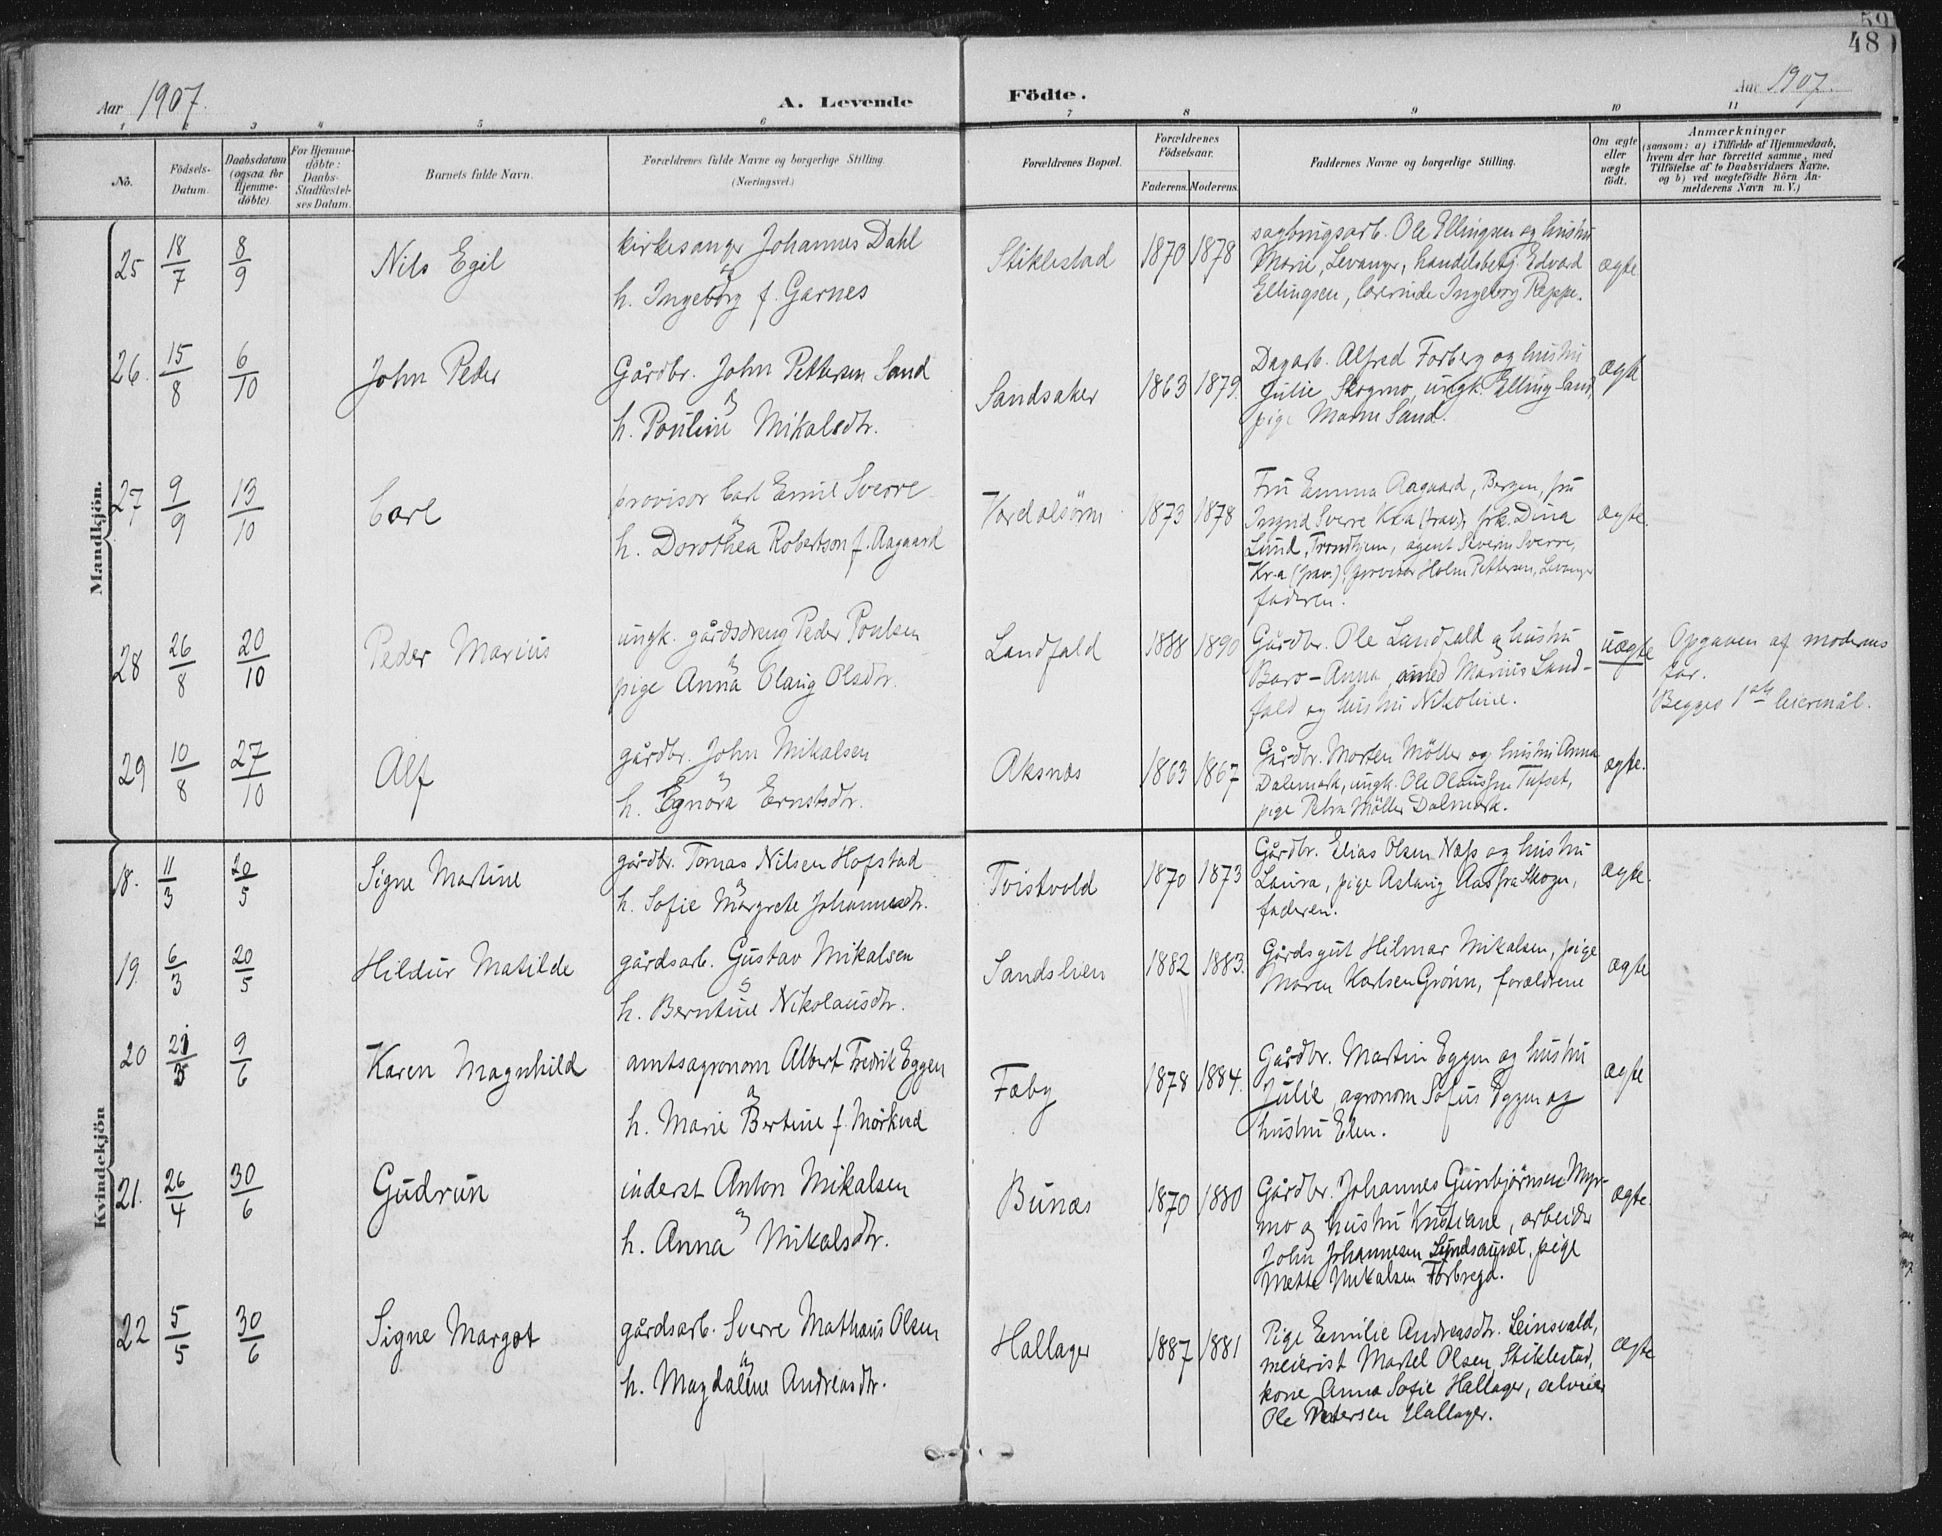 59
48
Aar 1907. A. Levende Födte. Aar 1907.
1 2 3 4 5 6 7 8 9 10 11
No. Födsels-Datum. Daabsdatum (ogsaa for Hjemme-döbte). For Hjemme-döbte: Daabs-Stadfæstel-ses Datum. Barnets fulde Navn. Forældrenes fulde Navne og borgerlige Stilling. (Næringsvei.) Forældrenes Bopæl. Forældrenes Födselsaar. Faderens. Moderens. Faddernes Navne og borgerlige Stilling. Om ægte eller uægte födt. Anmærkninger
(saasom: a) i Tilfælde af Hjemmedaab,
hvem der har forrettet samme, med
Tilföielse af to Daabsvidners Navne,
og b) ved uægtefödte Börn An-
melderens Navn m. V.)
Mandkjön.
25 18/7 8/9 Nils Egil kirkesanger Johannes Dahl
og
h. Ingeborg f. Garnes
Stiklestad 1870 1878 sagbrugsarb. Ole Ellingsen og hustru
Marie, Levanger, handelsbetj. Edvard
Ellingsen, lærerinde Ingeborg Reppe.
ægte
26. 15/8 6/10 John Peder Gårdbr. John Pettersen Sand
og
h. Pouline Mikalsdtr.
Sandsaker 1863 1879. Dagarb. Alfred Forberg og hustru
Julie, Skogmo, ungk. Elling Sand,
pige Maren Sand.
ægte
27 9/9 13/10 Carl provisor Carl Emil Sverre
og
h. Dorothea Robertson f. Aagaard
Værdalsøren 1873 1878 Fru Emma Aagaard, Bergen, fru
Ingrid Sverre Kr.a (frav.), frk. Dina
Lund, Trondhjem, agent Severin Sverre,
Kr.a (frav.), provisor Holm Pettersen, Levanger
faderen.
ægte.
28 26/8 20/10 Peder Marius ungk. gårdsdreng Peder Poulsen
og
pige Anna Olaug Olsdtr.
Landfald 1888 1890 Gårdbr. Ole Landfald og hustru
Baro-Anna, smed Marius Land-
fald og hustru Nikoline.
uægte Opgaven af moderens
far.
Begges 1ste leiermål.
29 10/8 27/10 Alf gårdbr. John Mikalsen
og
h. Egnora Ernstsdtr.
Aksnæs 1863 1867 Gårdbr. Morten Möller og hustru Anna
Dalemark, ungk. Ole Olaussen Tufset,
pige Petra Möller Dalemark.
ægte.
Kvindekjön
18. 11/3 20/5 Signe Martine gårdbr. Tomas Nilsen Hofstad
og
h. Sofie Margrete Johannesdtr.
Tvistvold 1870 1873 Gårdbr. Elias Olsen Næss og hustru
Laura, pige Aslaug Aasfra Skogn,
faderen.
ægte.
19. 6/3 20/5 Hildur Matilde gårdsarb. Gustav Mikalsen
og
h. Berntine Nikolausdtr.
Sandslien 1882 1883. Gårdsgut Hilmar Mikalsen, pige
Maren Karlsen Grönn, forældrene
ægte
20 9/6 Karen Magnhild amtsagronom Albert Fredrik Eggen
og
h. Marie Bertine f. Mørkved
Fæby 1878 1884. Gårdbr. Martin Eggen og hustru
Julie, agronom Sofus Eggen og
hustru Elen.
ægte
21. 26/4 30/6 Gudrun inderst Anton Mikalsen
og
h. Anna Mikalsdtr.
Bunæs 1870 1880 Gårdbr. Johannes Gunbjørnsen Myr-
mo og hustru Kristiane, arbeider
John Johannesen, pige
Mette Mikalsen Forbregd.
ægte.
22 5/5 30/6 Signe Margot gårdsarb. Sverre Mathæus Olsen
og
h. Magdalene Andreasdtr.
Hallager 1887 1881 Pige Emilie Andreasdtr. Leinsvald,
meierist Martel Olsen, Stiklestad,
kone Anna Sofie Hallager, selveier
Ole Petersen Hallager.
ægte